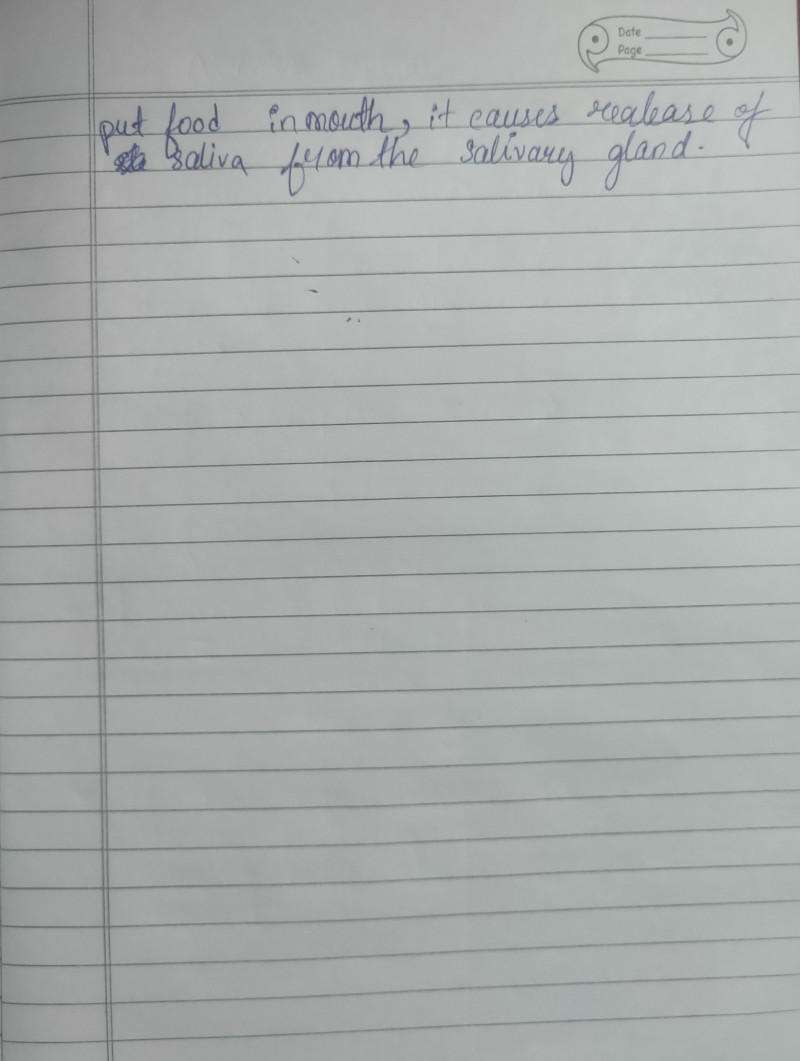 Date
Page
put food in mouth, it causes realease of
saliva from the salivary gland.